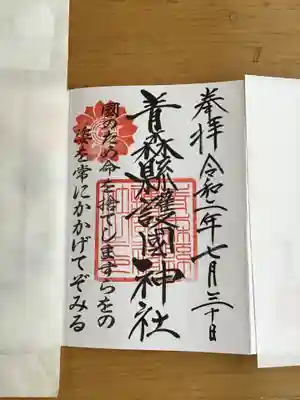 奉拝 令和元年七月三十日
青森縣護國神社
國のため命を捨てしますらをの
姿を常にかかげてぞみる